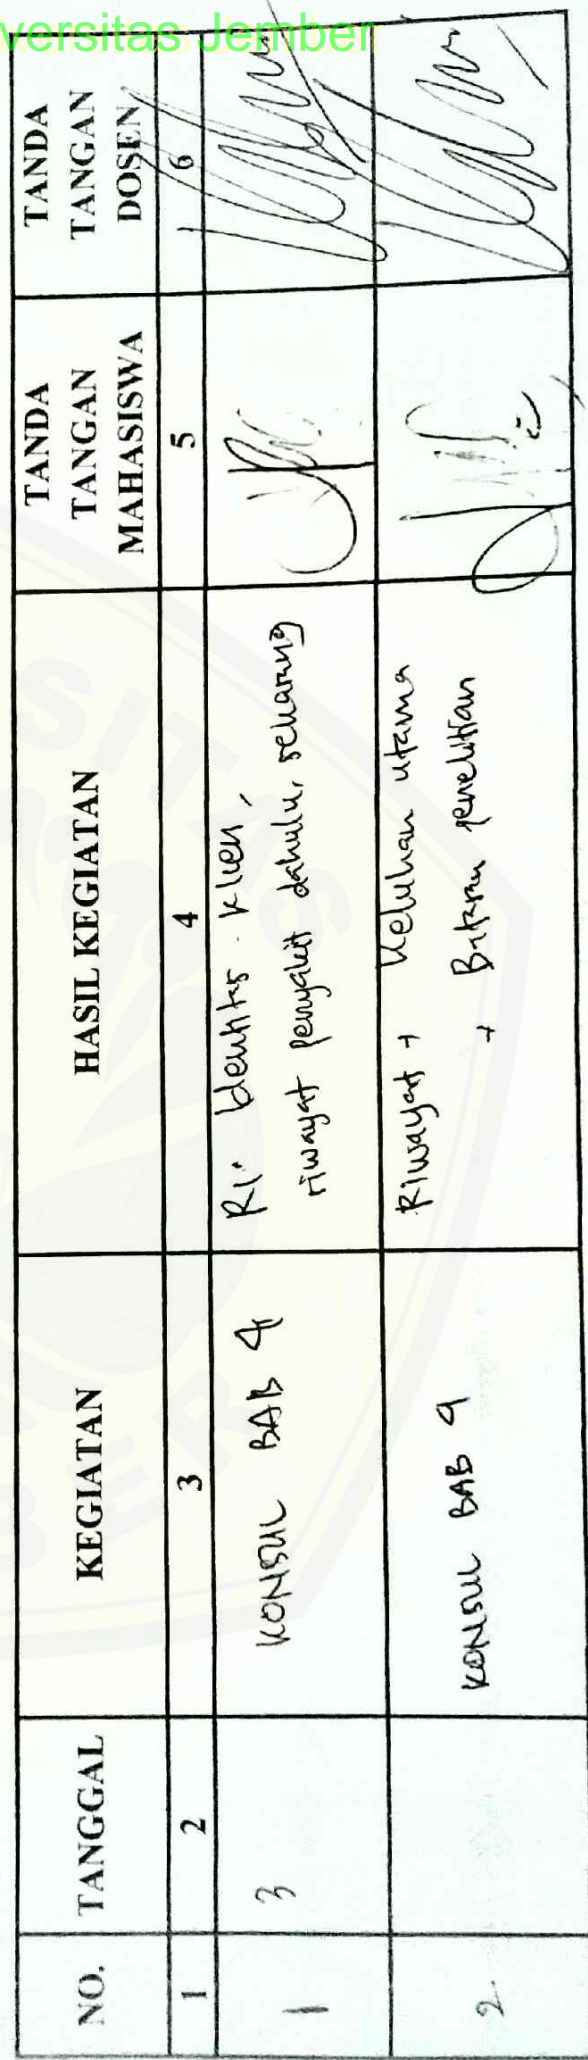 versitas Jember
NO. TANGGAL KEGIATAN HASIL KEGIATAN TANDA TANGAN MAHASISWA TANDA TANGAN DOSEN
1 2 3 4 5 6
1 3 KONSUL BAB 4 Identitas klien,
riwayat penyakit dahulu, sekarang
2. KONSUL BAB 4 Riwayat + Keluhan utama
+ Batasan penelitian